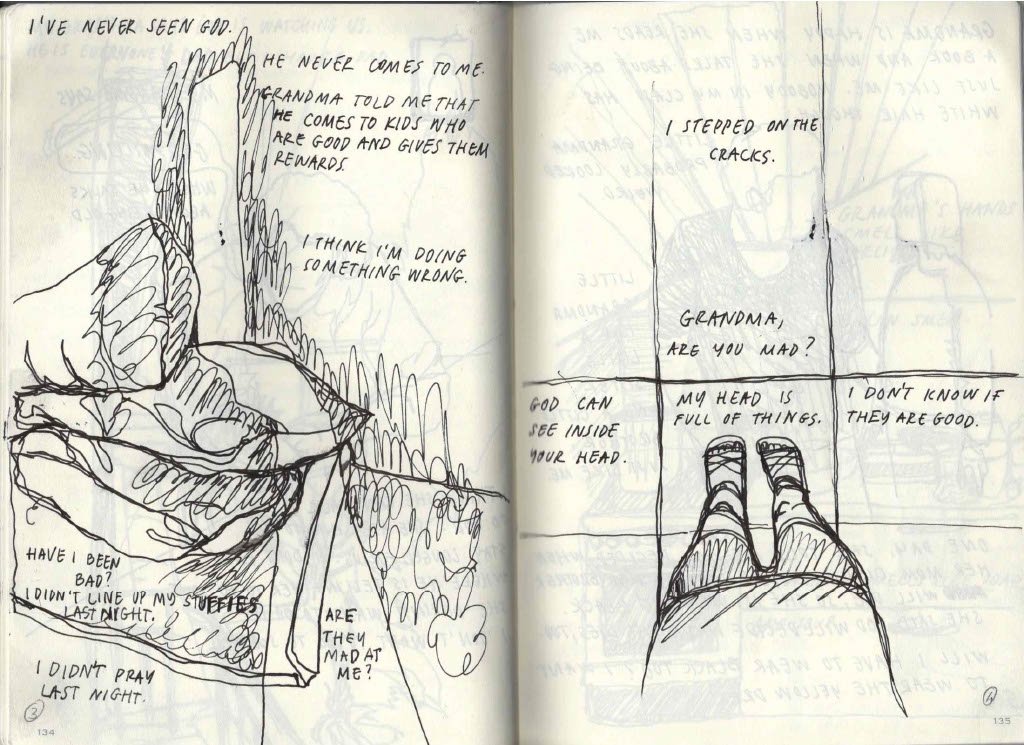 I'VE NEVER SEEN GOD.
HE NEVER COMES TO ME.
GRANDMA TOLD ME THAT
HE COMES TO KIDS WHO
ARE GOOD AND GIVES THEM
REWARDS.
I THINK I'M DOING
SOMETHING WRONG.
HAVE I BEEN
BAD?
I DIDN'T LINE UP MY STUFFIES
LAST NIGHT.
ARE
THEY
MAD AT
ME?
I DIDN'T PRAY
LAST NIGHT.
3
134
I STEPPED ON THE
CRACKS.
GRANDMA,
ARE YOU MAD?
GOD CAN
SEE INSIDE
YOUR HEAD.
MY HEAD IS
FULL OF THINGS.
I DON'T KNOW IF
THEY ARE GOOD.
4
135